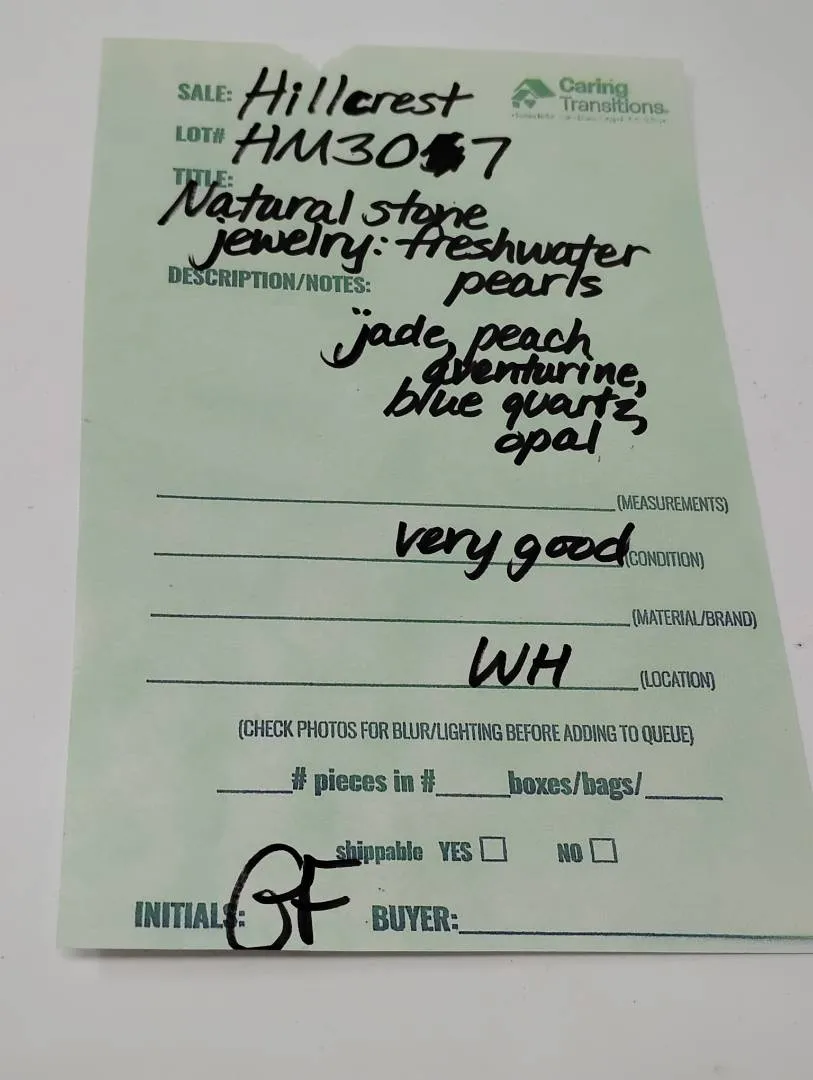 SALE: Hillcrest
Caring
Transitions
LOT# HM30 7
TITLE:
Natural stone
jewelry: freshwater
DESCRIPTION/NOTES: pearls
jade, peach
aventurine,
blue quartz,
opal
(MEASUREMENTS)
very good (CONDITION)
(MATERIAL/BRAND)
WH (LOCATION)
(CHECK PHOTOS FOR BLUR/LIGHTING BEFORE ADDING TO QUEUE)
# pieces in # boxes/bags/
shippable YES NO
INITIALS: BUYER: